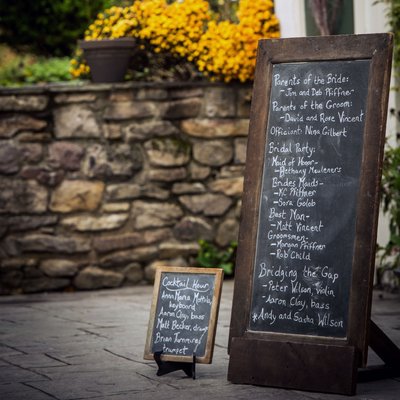 Parents of the Bride:
- Jim and Deb Pfiffner
Parents of the Groom:
- David and Rose Vincent
Officiant: Nina Gilbert
Bridal Party:
Maid of Honor-
Bethany Mouleners
Brides Maids-
KC Pfiffner
Sora Golob
Best Man-
Matt Vincent
Groomsmen-
Morgan Pfiffner
Rob Cain
Bridging the Gap
- Peter Wilson, Violin
- Aaron Clay, bass
*Andy and Sasha Wilson
Cocktail Hour
Anna Maria Mottola,
keyboard
Aaron Clay, bass
Matt Becker, drums
Brian
trumpet